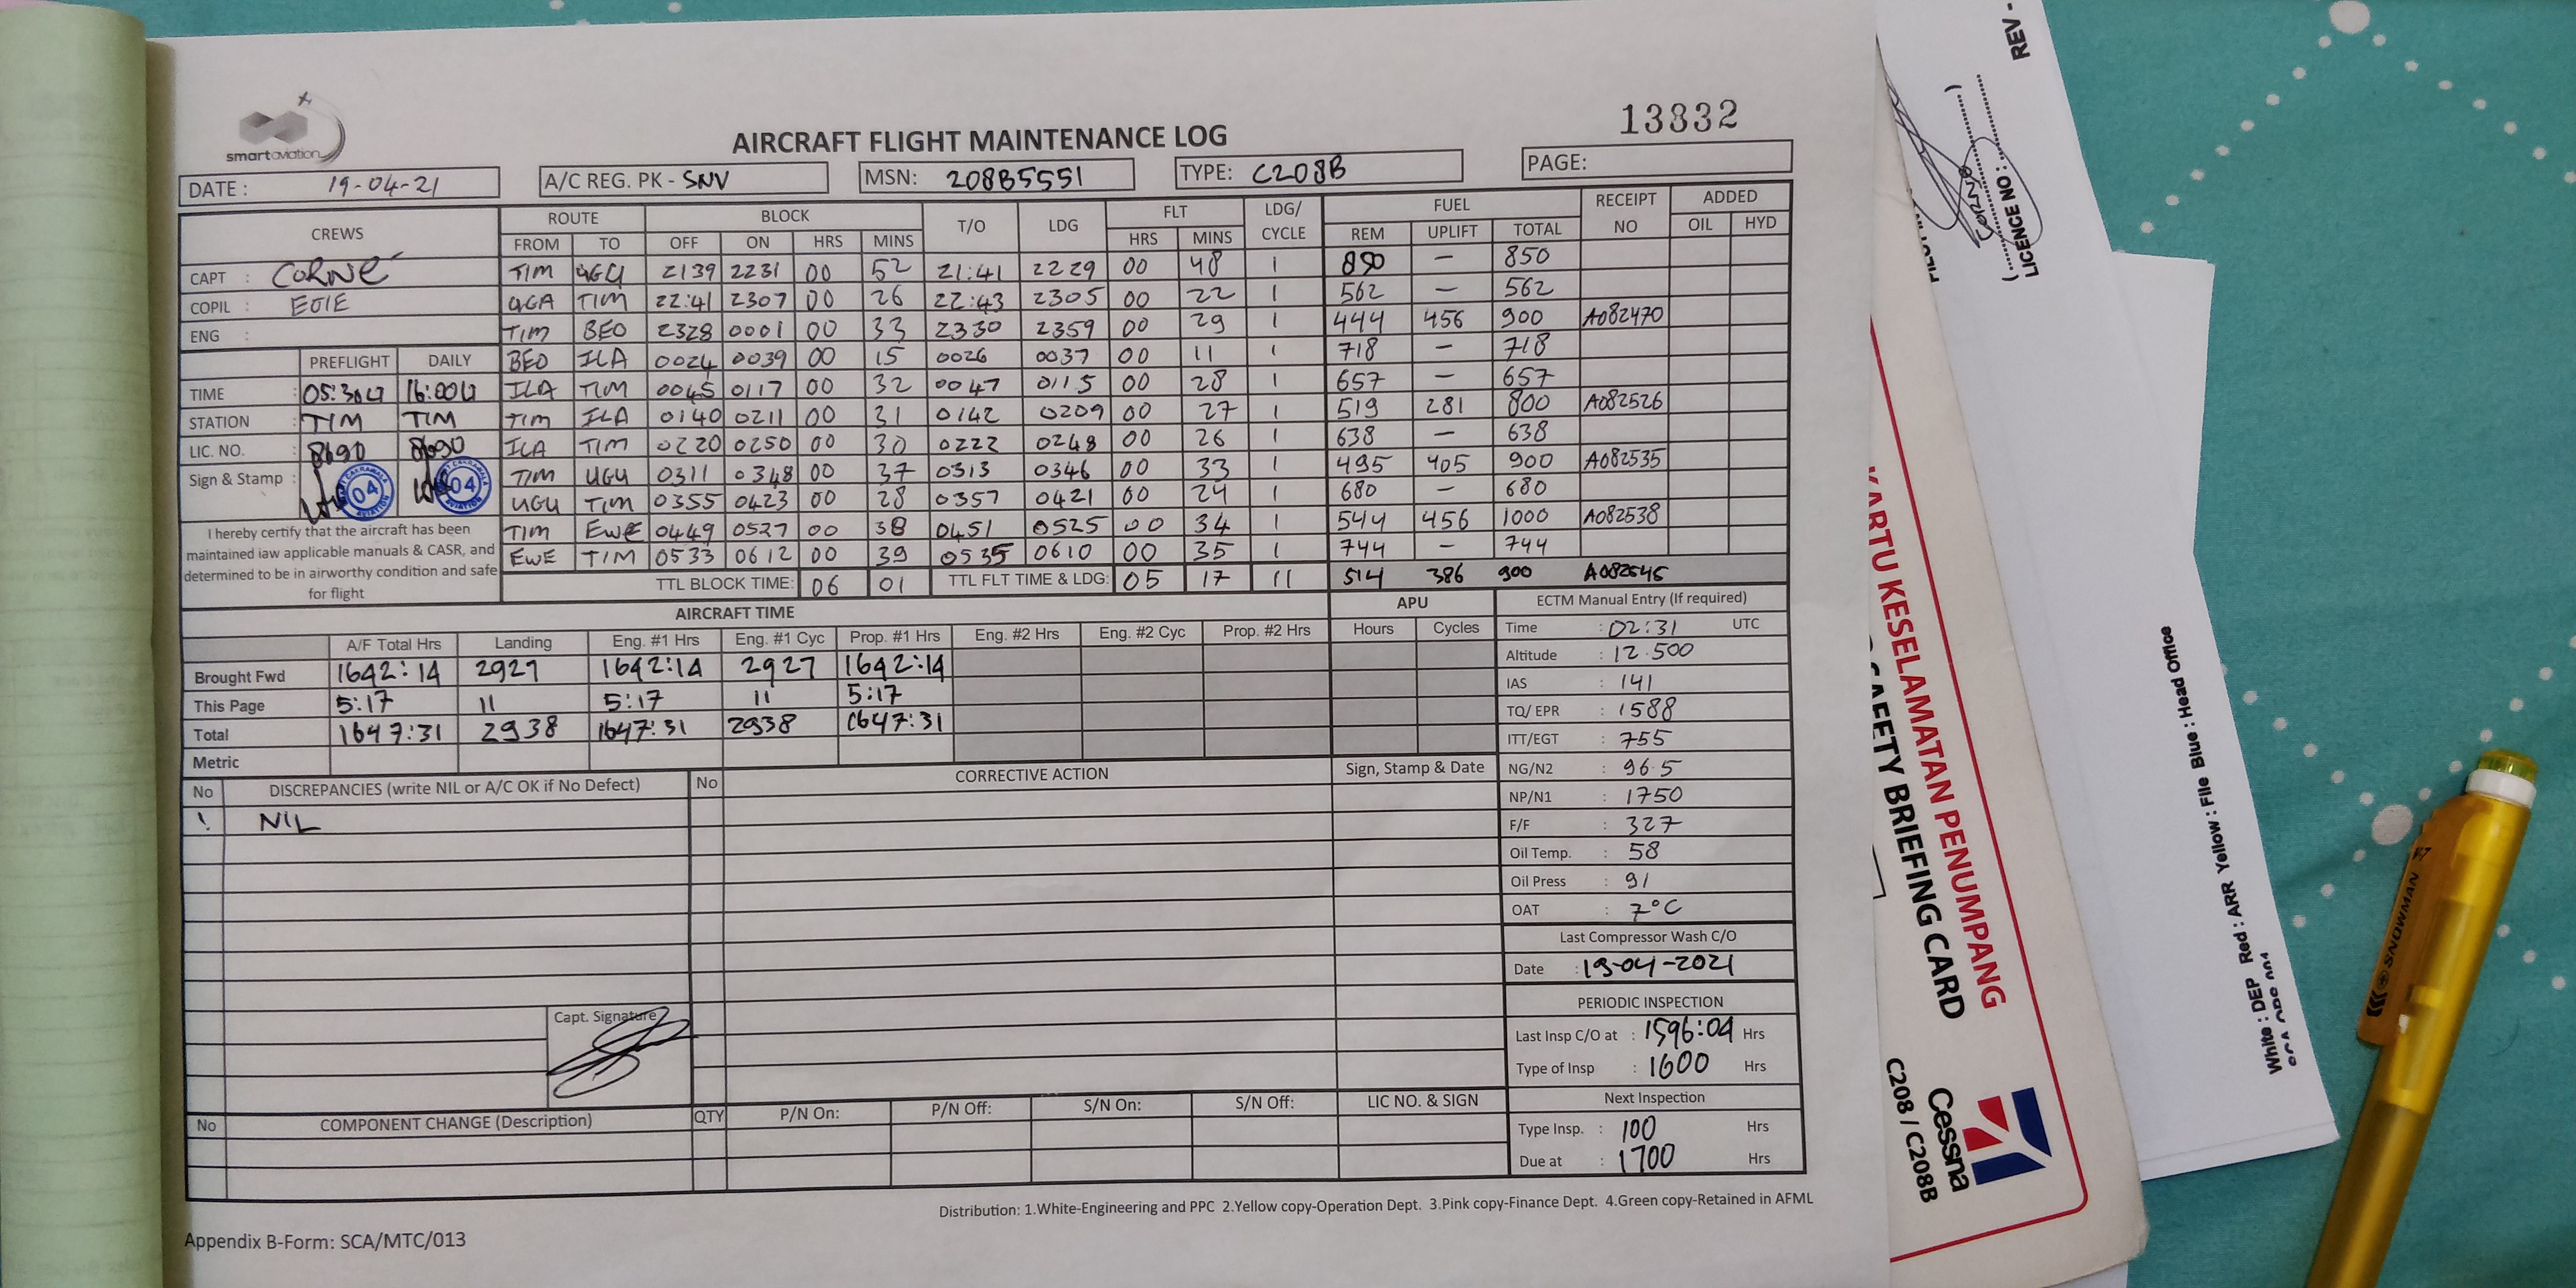 13832
smart aviation
AIRCRAFT FLIGHT MAINTENANCE LOG
DATE : 19-04-21 A/C REG. PK - SNV MSN: 208B5551 TYPE: C208B PAGE:
CREWS ROUTE BLOCK T/O LDG FLT LDG/ CYCLE FUEL RECEIPT NO ADDED
FROM TO OFF ON HRS MINS HRS MINS REM UPLIFT TOTAL OIL HYD
CAPT : CORNÉ TIM UGU 2139 2231 00 52 21:41 2229 00 48 1 850 — 850
COPIL : UGA TIM 22:41 2307 00 26 22:43 2305 00 22 1 562 — 562
ENG : TIM BEO 2328 0001 00 33 2330 2359 00 29 1 444 456 900 A082470
PREFLIGHT DAILY BEO ILA 0024 0039 00 15 0026 0037 00 11 1 718 — 718
TIME : 05:30U 16:00U ILA TIM 0045 0117 00 32 0047 0115 00 28 1 657 — 657
STATION : TIM TIM TIM ILA 0140 0211 00 31 0142 0209 00 27 1 519 281 800 A082526
LIC. NO. : 8690 8690 ILA TIM 0220 0250 00 30 0222 0248 00 26 1 638 — 638
Sign & Stamp : 04 04 TIM UGU 0311 0348 00 37 0313 0346 00 33 1 495 405 900 A082535
UGU TIM 0355 0423 00 28 0357 0421 00 24 1 680 — 680
TIM EWE 0449 0527 00 38 0451 0525 00 34 1 544 456 1000 A082538
EWE TIM 0533 0612 00 39 0535 0610 00 35 1 744 — 744
TTL BLOCK TIME: 06 01 TTL FLT TIME & LDG: 05 17 11 514 386 900 A082545
I hereby certify that the aircraft has been
maintained iaw applicable manuals & CASR, and
determined to be in airworthy condition and safe
for flight
AIRCRAFT TIME APU
A/F Total Hrs Landing Eng. #1 Hrs Eng. #1 Cyc Prop. #1 Hrs Eng. #2 Hrs Eng. #2 Cyc Prop. #2 Hrs Hours Cycles
Brought Fwd 1642:14 2927 1642:14 2927 1642:14
This Page 5:17 11 5:17 11 5:17
Total 1647:31 2938 1647:31 2938 1647:31
Metric
ECTM Manual Entry (If required)
Time : 02:31 UTC
Altitude : 12.500
IAS : 141
TQ/ EPR : 1588
ITT/EGT : 755
NG/N2 : 96.5
NP/N1 : 1750
F/F : 327
Oil Temp. : 58
Oil Press : 91
OAT : 7°C
Last Compressor Wash C/O
Date : 19-04-2021
PERIODIC INSPECTION
Last Insp C/O at : 1596:04 Hrs
Type of Insp : 1600 Hrs
Next Inspection
Type Insp. : 100 Hrs
Due at : 1700 Hrs
No DISCREPANCIES (write NIL or A/C OK if No Defect) No CORRECTIVE ACTION Sign, Stamp & Date
1 NIL
Capt. Signature
No COMPONENT CHANGE (Description) QTY P/N On: P/N Off: S/N On: S/N Off: LIC NO. & SIGN
Distribution: 1.White-Engineering and PPC 2.Yellow copy-Operation Dept. 3.Pink copy-Finance Dept. 4.Green copy-Retained in AFML
Appendix B-Form: SCA/MTC/013
KARTU KESELAMATAN PENUMPANG
SAFETY BRIEFING CARD
C208 / C208B
Cessna
REV -
LICENCE NO :
CORNE
White : DEP Red : ARR Yellow : File Blue : Head Office
SNOWMAN V-7